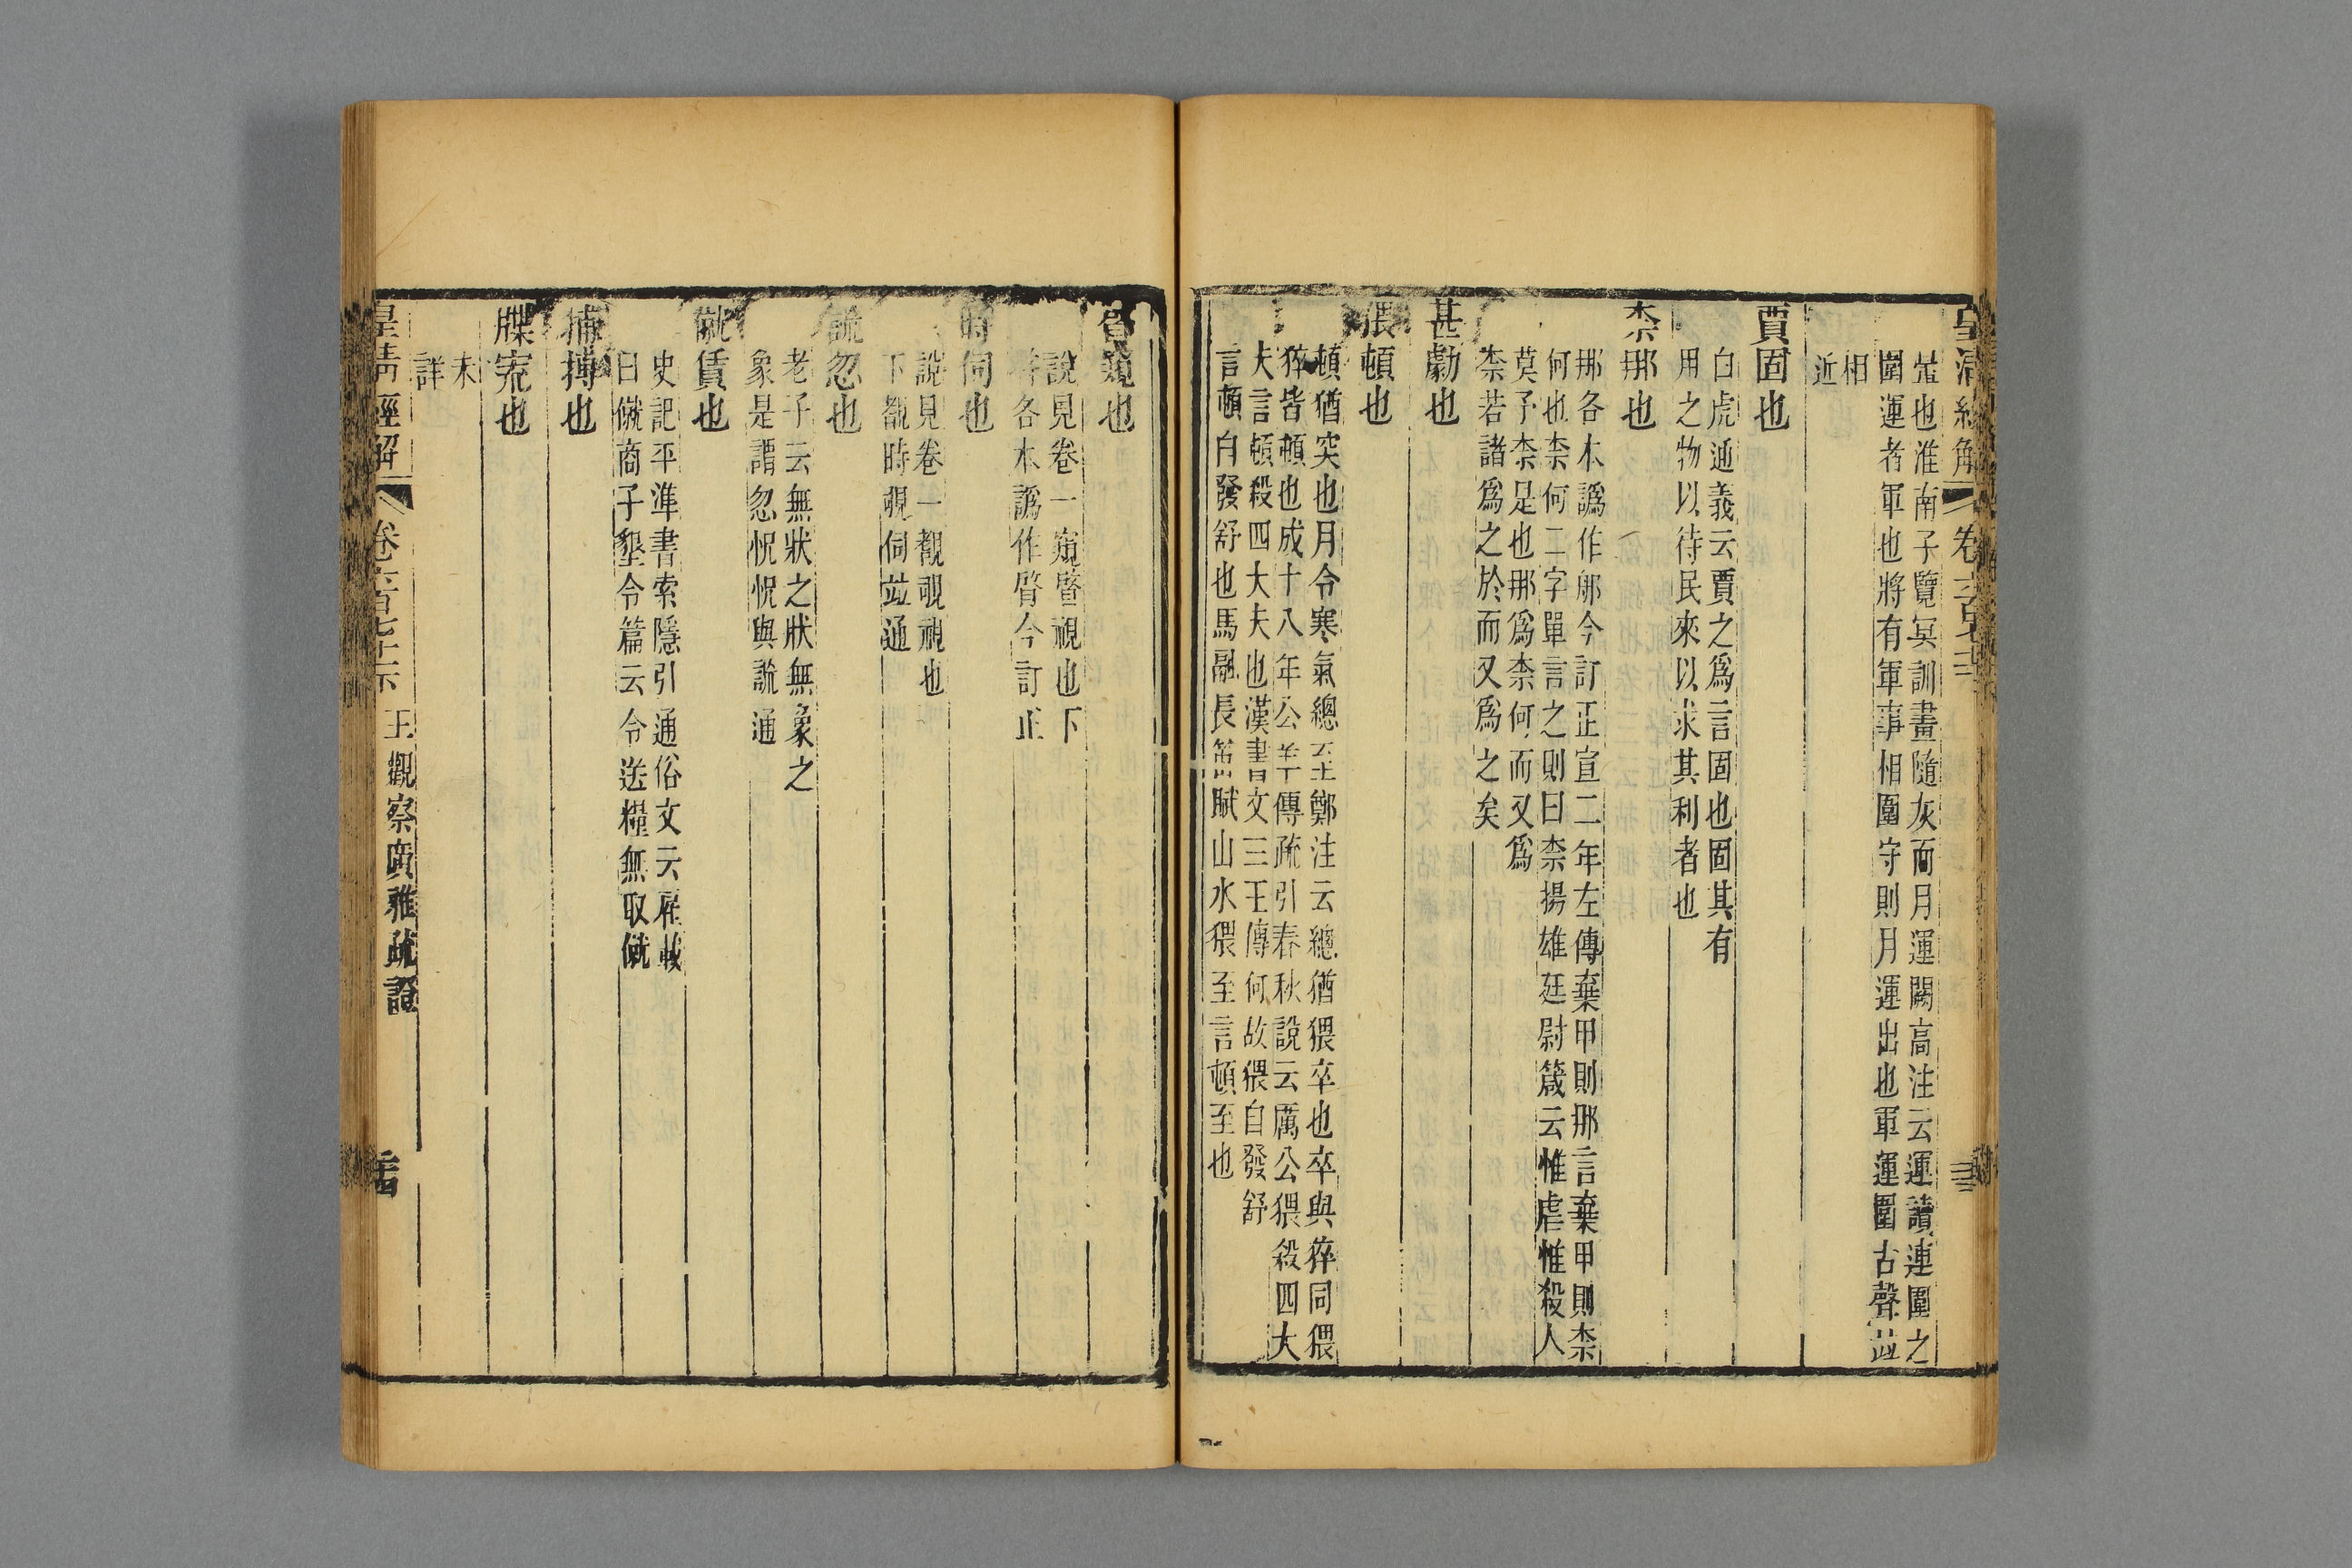 皇清經解 卷六百七十六
營也淮南子覽冥訓畫隨灰而月運闕高注云運讀連圍之
圍運者軍也將有軍事相圍守則月運出也軍運圍古聲竝
相
近
賈固也
白虎通義云賈之爲言固也固其有
用之物以待民來以求其利者也
柰那也
那各本譌作郍今訂正宣二年左傳棄甲則那言棄甲則柰
何也柰何二字單言之則曰柰揚雄廷尉箴云惟虐惟殺人
莫予柰是也那爲柰何而又爲
柰若諸爲之於而又爲之矣
甚勮也
猥頓也
頓猶突也月令寒氣總至鄭注云總猶猥卒也卒與猝同猥
猝皆頓也成十八年公羊傳疏引春秋說云厲公猥殺四大
夫言頓殺四大夫也漢書文三王傳何故猥自發舒
言頓自發舒也馬融長笛賦山水猥至言頓至也
窺也
說見卷一窺䁤視也下
各本譌作㫯今訂正
時伺也
說見卷一覩覗視也
下覩時覗伺竝通
忽也
老子云無狀之狀無象之
象是謂忽怳怳與㦛通
僦賃也
史記平準書索隱引通俗文云雇載
曰僦商子墾令篇云令送糧無取僦
捕搏也
㸣究也
未
詳
皇清經解 卷六百七十六 王觀察廣雅疏證